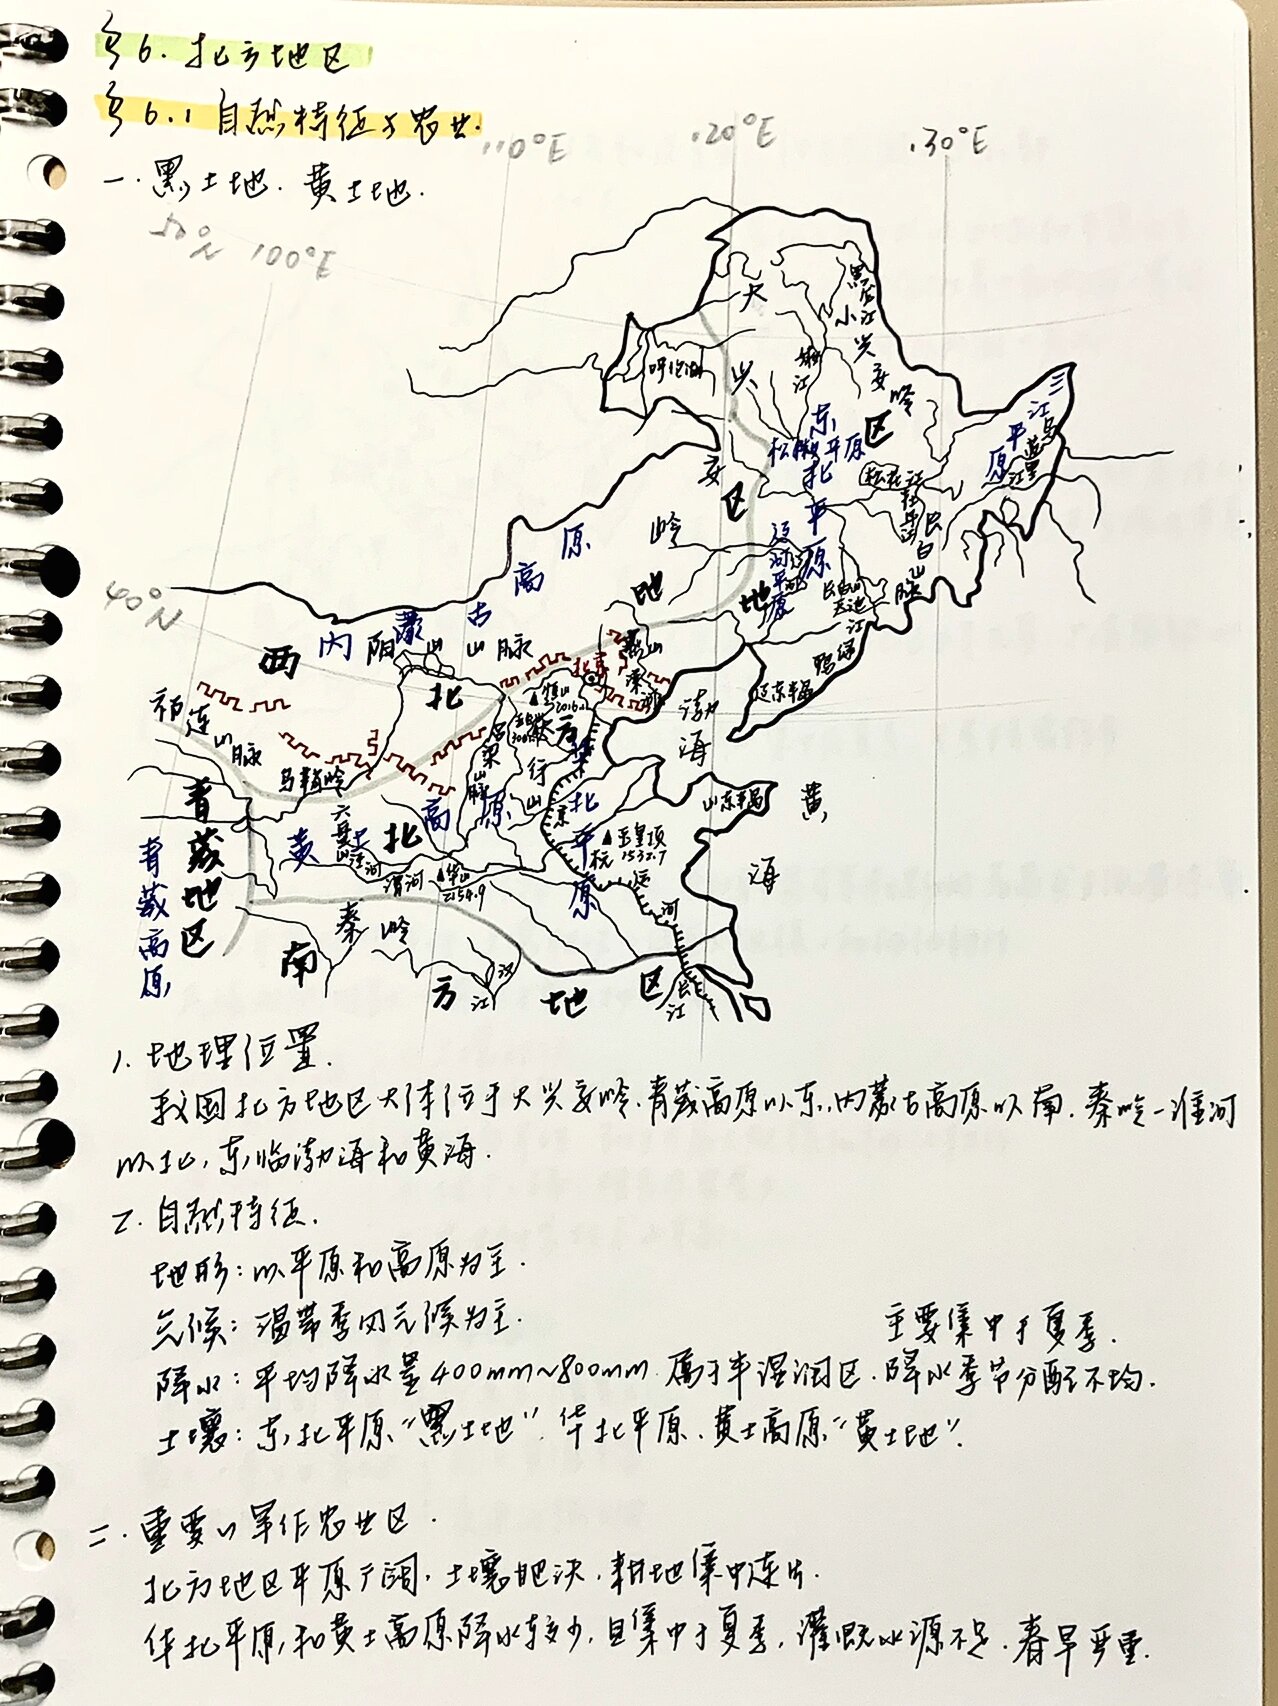 §6.北方地区
§6.1 自然特征与农业.
一.黑土地.黄土地.
110°E
120°E
130°E
50°N 100°E
40°N
大兴安岭
黑龙江
小兴安岭
嫩江
呼伦湖
三江平原
乌苏里江
松嫩平原
东北平原
松花江
长白山脉
辽河平原
辽河
长白山天池
鸭绿江
辽东半岛
内蒙古高原
阴山山脉
西北地区
北京
燕山
渤海
祁连山脉
恒山
2016.1
五台山
吕梁山脉
太行山
北方地区
华北平原
山东半岛
黄海
乌鞘岭
六盘山
黄土高原
泾河
渭河
华山
2154.9
玉皇顶
1532.7
京杭运河
青藏地区
青藏高原
秦岭
南方地区
汉江
长江
1.地理位置.
我国北方地区大体位于大兴安岭.青藏高原以东,内蒙古高原以南.秦岭—淮河
以北,东临渤海和黄海.
2.自然特征.
地形:以平原和高原为主.
气候:温带季风气候为主.
主要集中于夏季.
降水:平均降水量400mm~800mm.属于半湿润区.降水季节分配不均.
土壤:东北平原“黑土地”.华北平原.黄土高原“黄土地”.
二.重要的旱作农业区.
北方地区平原广阔.土壤肥沃.耕地集中连片.
华北平原和黄土高原降水较少,且集中于夏季,灌溉水源不足.春旱严重.